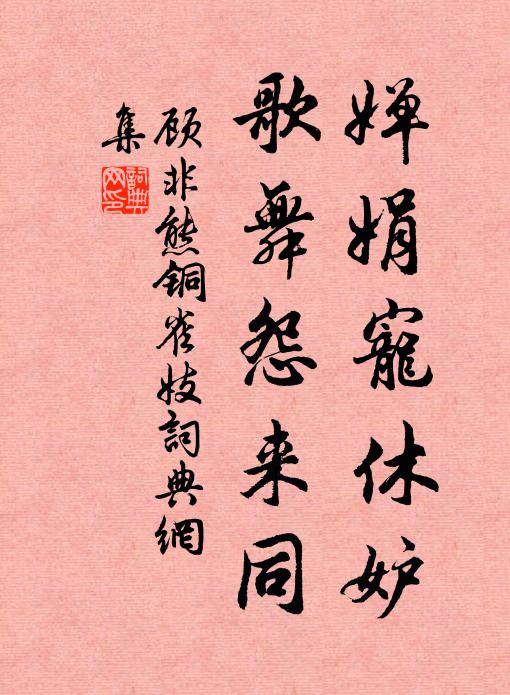 婵娟寵休妒
歌舞怨来同
顾非熊铜雀妓詞典網
集
詞典网印